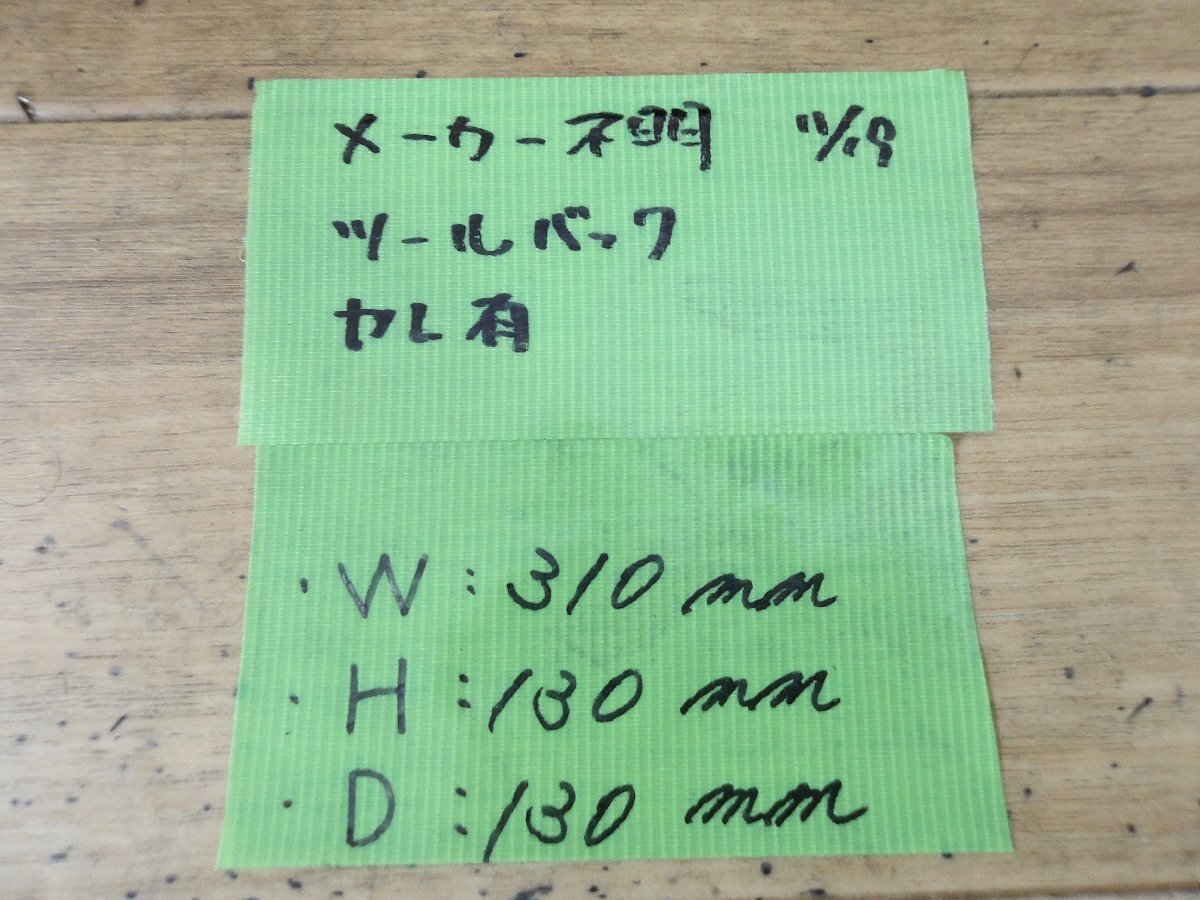 メーカー不明 11/19
ツールバック
ヤレ有
・W:310mm
・H:130mm
・D:130mm